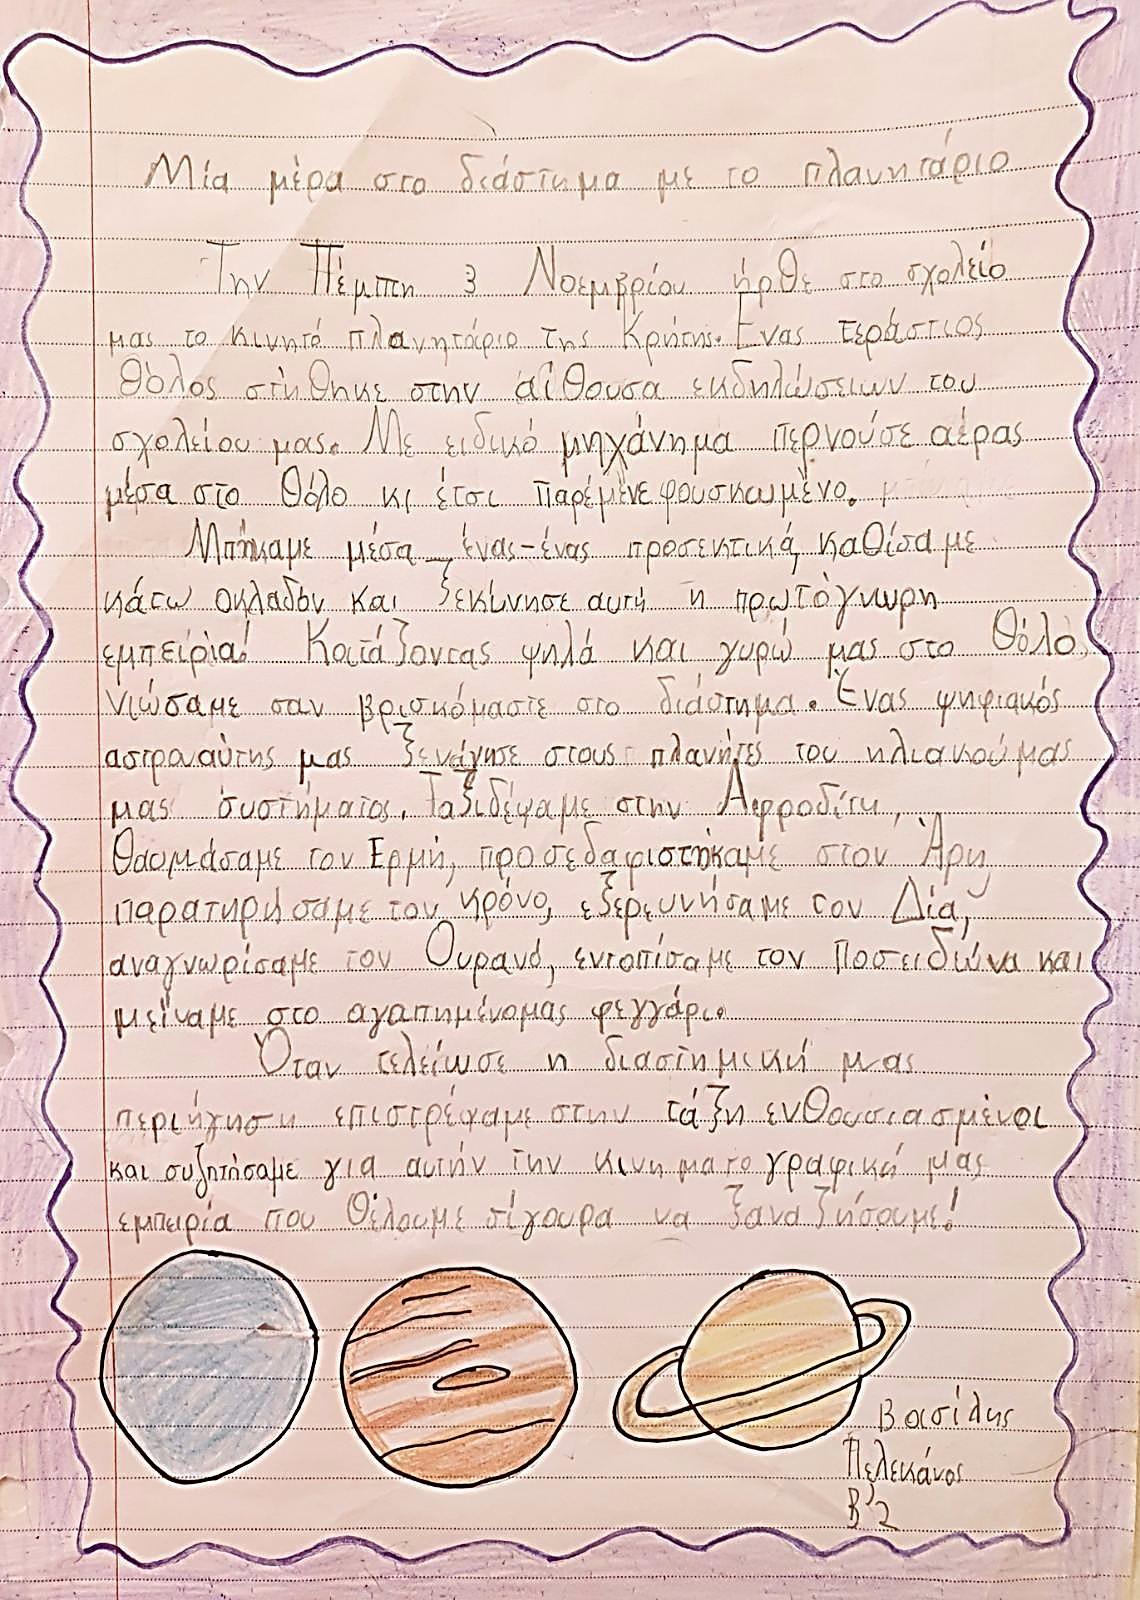 Μία μέρα στο διάστημα με το πλανητάριο
Την Πέμπτη 3 Νοεμβρίου ήρθε στο σχολείο
μας το κινητό πλανητάριο της Κρήτης. Ένας τεράστιος
θόλος στήθηκε στην αίθουσα εκδηλώσεων του
σχολείου μας. Με ειδικό μηχάνημα περνούσε αέρας
μέσα στο θόλο κι έτσι παρέμενε φουσκωμένο.
Μπήκαμε μέσα ένας-ένας προσεκτικά, καθίσαμε
κάτω οκλαδόν και ξεκίνησε αυτή η πρωτόγνωρη
εμπειρία! Κοιτάζοντας ψηλά και γυρώ μας στο θόλο
νιώσαμε σαν βρισκόμαστε στο διάστημα. Ένας ψηφιακός
αστροναύτης μας ξενάγησε στους πλανήτες του ηλιακού μας
μας συστήματος. Ταξιδέψαμε στην Αφροδίτη,
θαυμάσαμε τον Ερμή, προσεδαφιστήκαμε στον Άρη,
παρατηρήσαμε τον κρόνο, εξερευνήσαμε τον Δία,
αναγνωρίσαμε τον Ουρανό, εντοπίσαμε τον Ποσειδώνα και
μείναμε στο αγαπημένομας φεγγάρι.
Όταν τελείωσε η διαστημική μας
περιήγηση επιστρέψαμε στην τάξη ενθουσιασμένοι
και συζητήσαμε για αυτήν την κινηματογραφική μας
εμπειρία που θέλουμε σίγουρα να ξαναζήσουμε!
Βασίλης
Πελεκάνος
Β'2